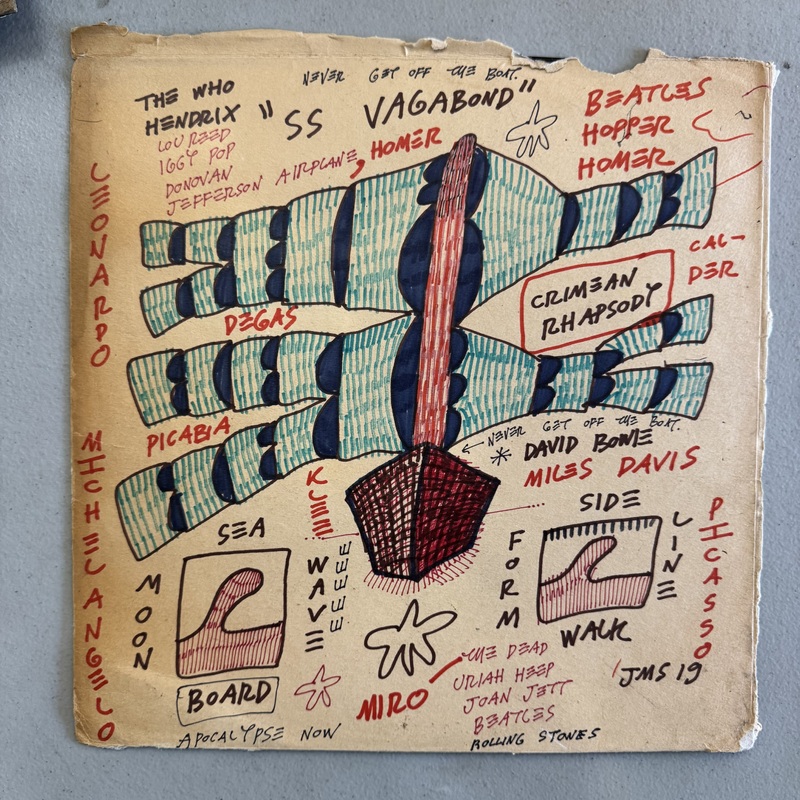 NEVER GET OFF THE BOAT.
THE WHO
HENDRIX
LOU REED
IGGY POP
DONOVAN
JEFFERSON AIRPLANE, HOMER
"SS VAGABOND"
BEATLES
HOPPER
HOMER
LEONARDO
CAL-
DER
CRIMEAN
RHAPSODY
DEGAS
PICABIA
NEVER GET OFF THE BOAT.
* DAVID BOWIE
MILES DAVIS
MICHELANGELO
KLEE
SEA
MOON
WAVE
EEEEE
BOARD
APOCALYPSE NOW
SIDE
FORM
LINE
WALK
PICASSO
MIRO
THE DEAD
URIAH HEEP
JOAN JETT
BEATLES
ROLLING STONES
'JMS 19